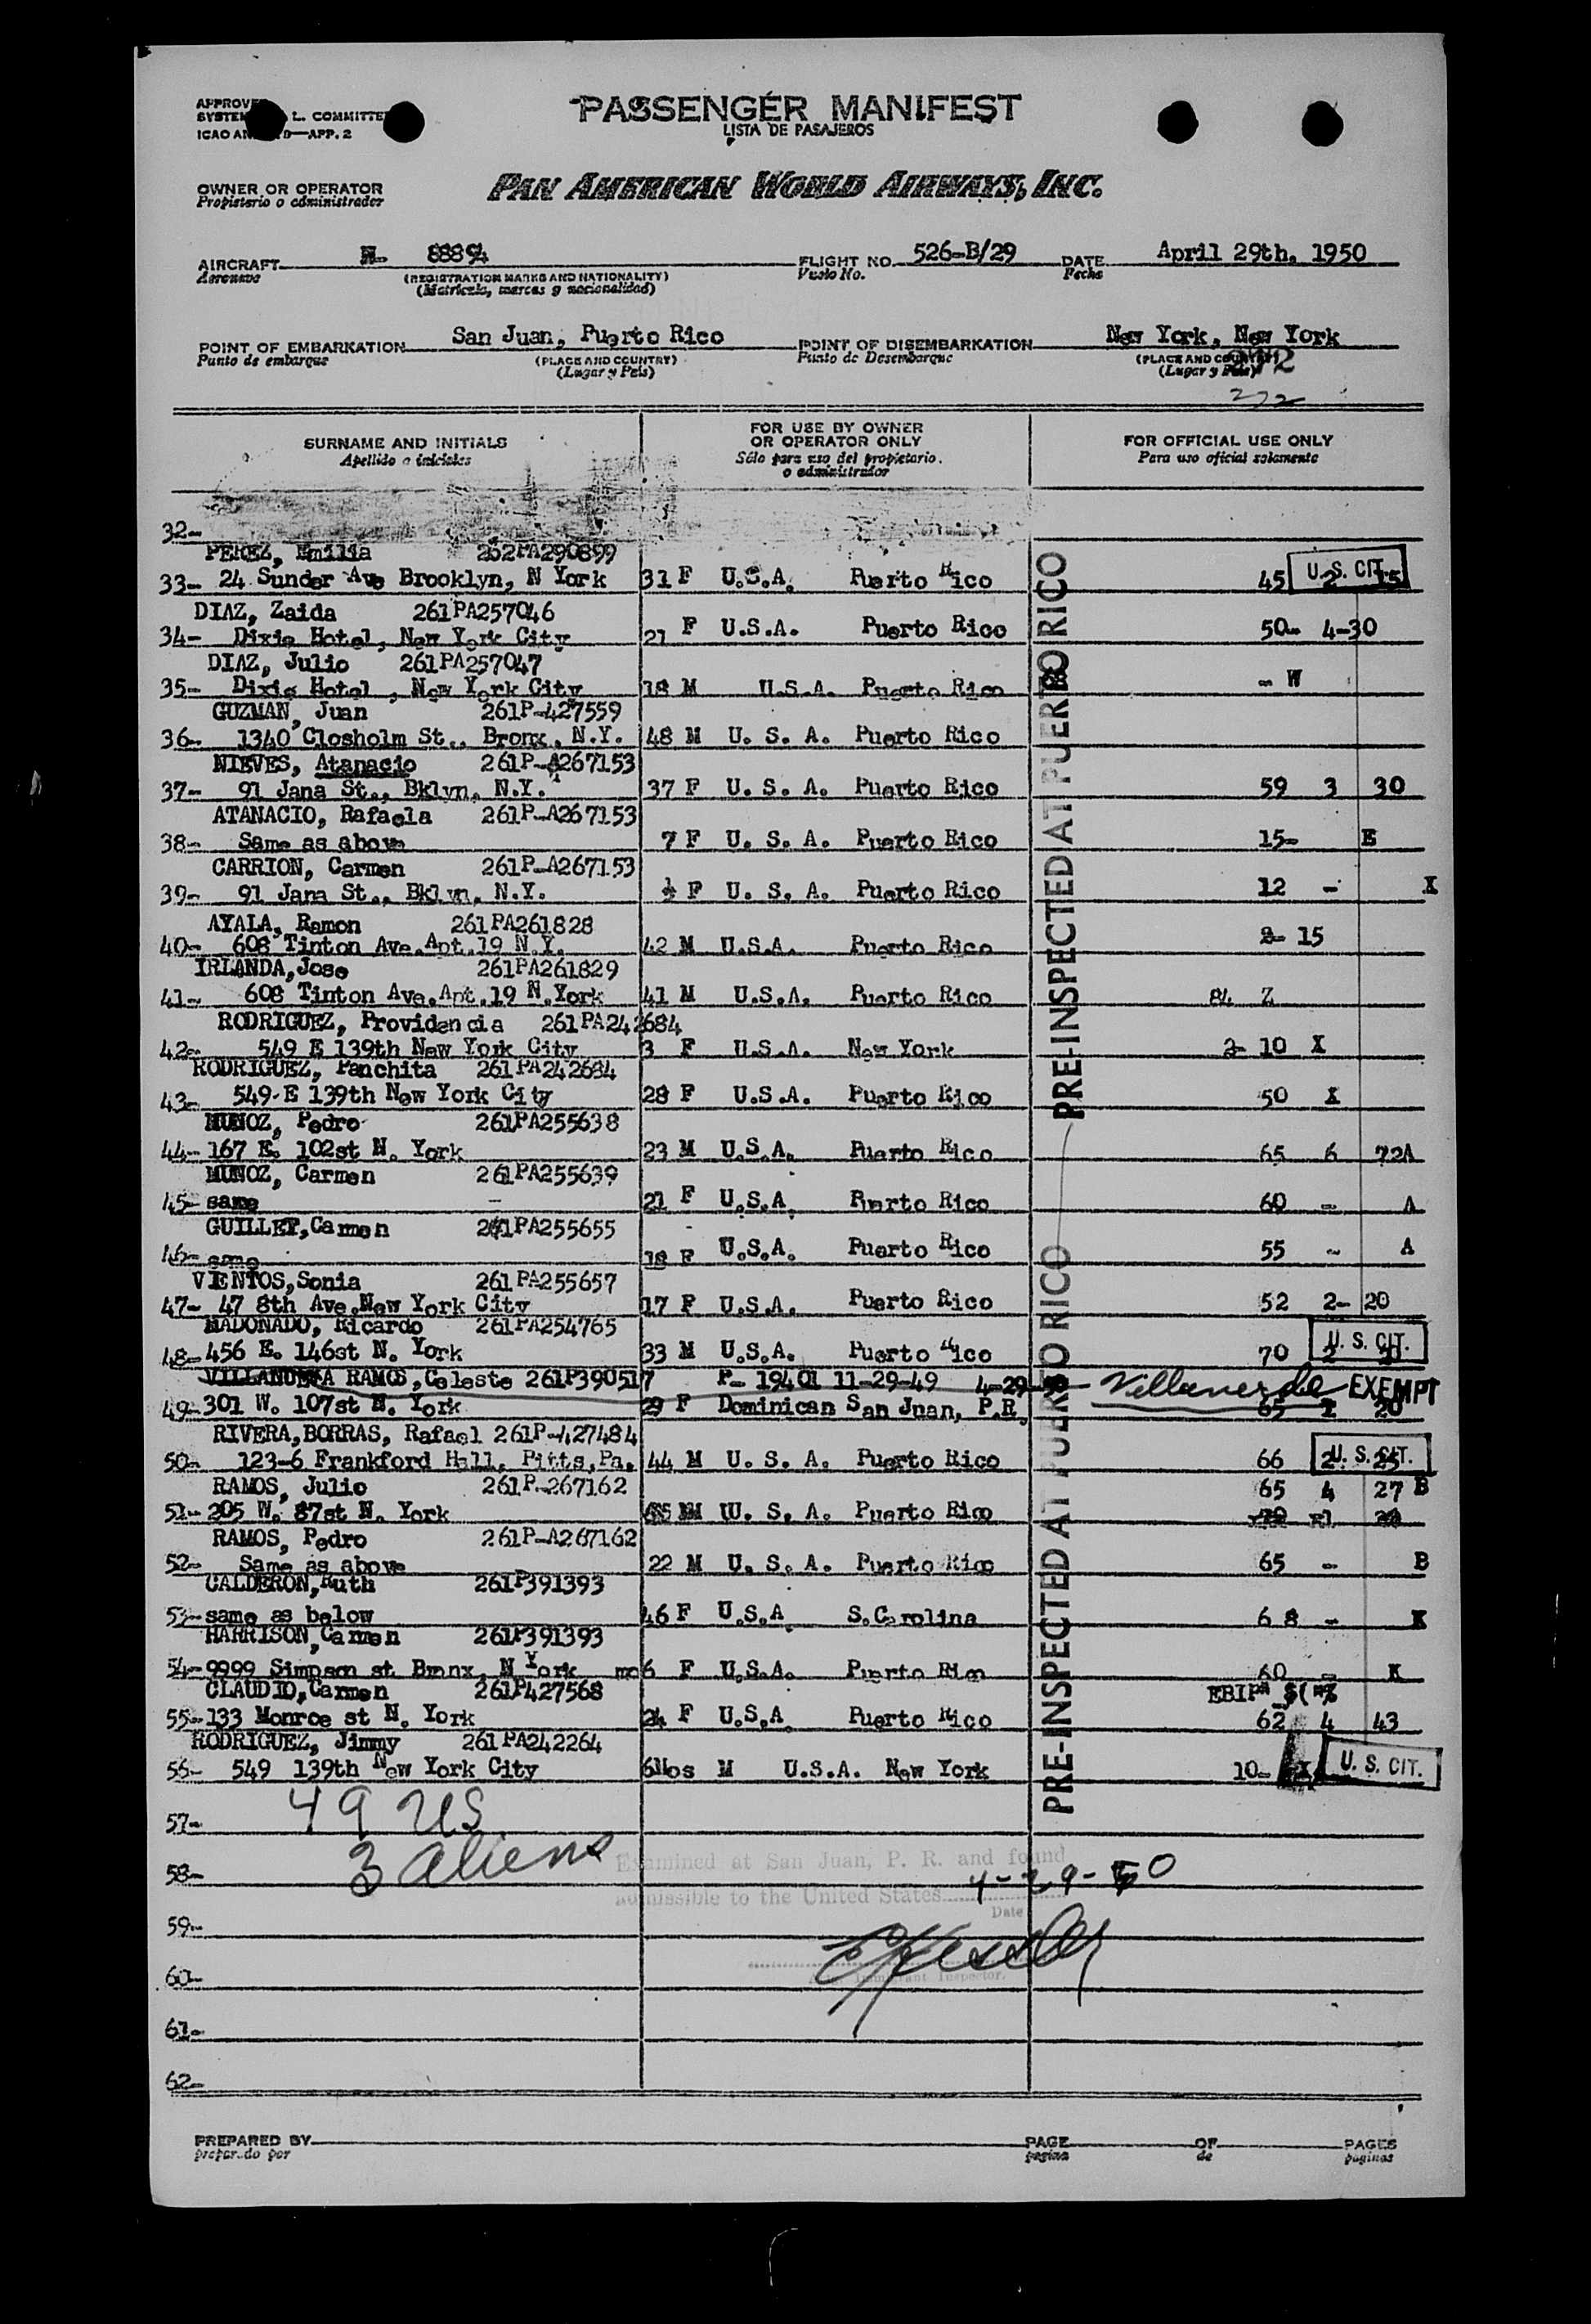 PASSENGER MANIFEST
LISTA DE PASAJEROS
L. COMMITTEE
ICAO APP. 2
OWNER OR OPERATOR
Propietario o administrador
PAN AMERICAN WORLD AIRWAYS, INC.
AIRCRAFT N- FLIGHT NO. 526-B/29 DATE April 29th, 1950
Aeronave (REGISTRATION MARKS AND NATIONALITY) Vuelo No. Fecha
(Matricula, marcas y nacionalidad)
POINT OF EMBARKATION San Juan, Puerto Rico POINT OF DISEMBARKATION New York, New York
Punto de embarque (PLACE AND COUNTRY) Punto de Desembarque (PLACE AND COUNTRY)
(Lugar y Pais) (Lugar y Pais)
272
SURNAME AND INITIALS FOR USE BY OWNER OR OPERATOR ONLY FOR OFFICIAL USE ONLY
Apellido o iniciales Sólo para uso del propietario. o administrador Para uso oficial solamente
32-
PEREZ, Emilia 262PA290899
33- 24 Sunder Ave Brooklyn, N York 31 F U.S.A. Puerto Rico 45 2 15 U.S. CIT.
DIAZ, Zaida 261PA257046
34- Dixie Hotel, New York City 21 F U.S.A. Puerto Rico 50- 4-30
DIAZ, Julio 261PA257047
35- Dixie Hotel , New York City 18 M U.S.A. Puerto Rico - W
GUZMAN, Juan 261P-427559
36- 1340 Closholm St., Bronx, N.Y. 48 M U. S. A. Puerto Rico
NIEVES, Atanacio 261P-A267153
37- 91 Jana St., Bklyn, N.Y. 37 F U. S. A. Puerto Rico 59 3 30
ATANACIO, Rafaela 261P-A267153
38- Same as above 7 F U. S. A. Puerto Rico 15- E
CARRION, Carmen 261P-A267153
39- 91 Jana St., Bklyn, N.Y. ½ F U. S. A. Puerto Rico 12 - X
AYALA, Ramon 261PA261828
40- 608 Tinton Ave.Apt.19 N.Y. 42 M U.S.A. Puerto Rico 2- 15
IRLANDA,Jose 261PA261829
41- 608 Tinton Ave.Apt.19 N.York 41 M U.S.A. Puerto Rico 84 Z
RODRIGUEZ, Providencia 261PA242684
42- 549 E 139th New York City 3 F U.S.A. New York 2- 10 X
RODRIGUEZ, Panchita 261PA242684
43- 549-E 139th New York City 28 F U.S.A. Puerto Rico 50 X
MUNOZ, Pedro 261PA255638
44- 167 E. 102st N. York 23 M U.S.A. Puerto Rico 65 6 72A
MUNOZ, Carmen 261PA255639
45- same 21 F U.S.A. Puerto Rico 60 - A
GUILLET,Carmen 261PA255655
46- same 18 F U.S.A. Puerto Rico 55 - A
VIENTOS,Sonia 261PA255657
47- 47 8th Ave.New York City 17 F U.S.A. Puerto Rico 52 2- 20
MADONADO, Ricardo 261PA254765
48- 456 E. 146st N. York 33 M U.S.A. Puerto Rico 70 2 U. S. CIT.
RAMOS,Celeste 261P390517 P- 19401 11-29-49 4-29- Villaverde EXEMPT
49- 301 W. 107st N. York 29 F Dominican San Juan, P.R. 65 1 20
RIVERA,BORRAS, Rafael 261P-427484
50- 123-6 Frankford Hall, Pitts,Pa. 44 M U. S. A. Puerto Rico 66 2 25 U. S. CIT.
RAMOS, Julio 261P-267162 65 4 27 B
51- 205 W. 87st N. York M U. S. A. Puerto Rico
RAMOS, Pedro 261P-A267162
52- Same as above 22 M U. S. A. Puerto Rico 65 - B
CALDERON,Ruth 261P391393
53- same as below 46 F U.S.A S.Carolina 68 - K
HARRISON,Carmen 261P391393
54- 9999 Simpson st Bronx, N York mo6 F U.S.A. Puerto Rico 60 - K
CLAUDIO,Carmen 261P427568
55- 133 Monroe st N. York 24 F U.S.A Puerto Rico 62 4 43
RODRIGUEZ, Jimmy 261PA242264
56- 549 139th New York City 6Mos M U.S.A. New York 10- U. S. CIT.
PRE-INSPECTED AT PUERTO RICO
PRE-INSPECTED AT PUERTO RICO
57- 49 US
58- 3 aliens
Examined at San Juan, P. R. and found
admissible to the United States 4-29-50
Date
59-
60- Immigrant Inspector.
61-
62-
PREPARED BY PAGE OF PAGES
preparado por pagina de paginas